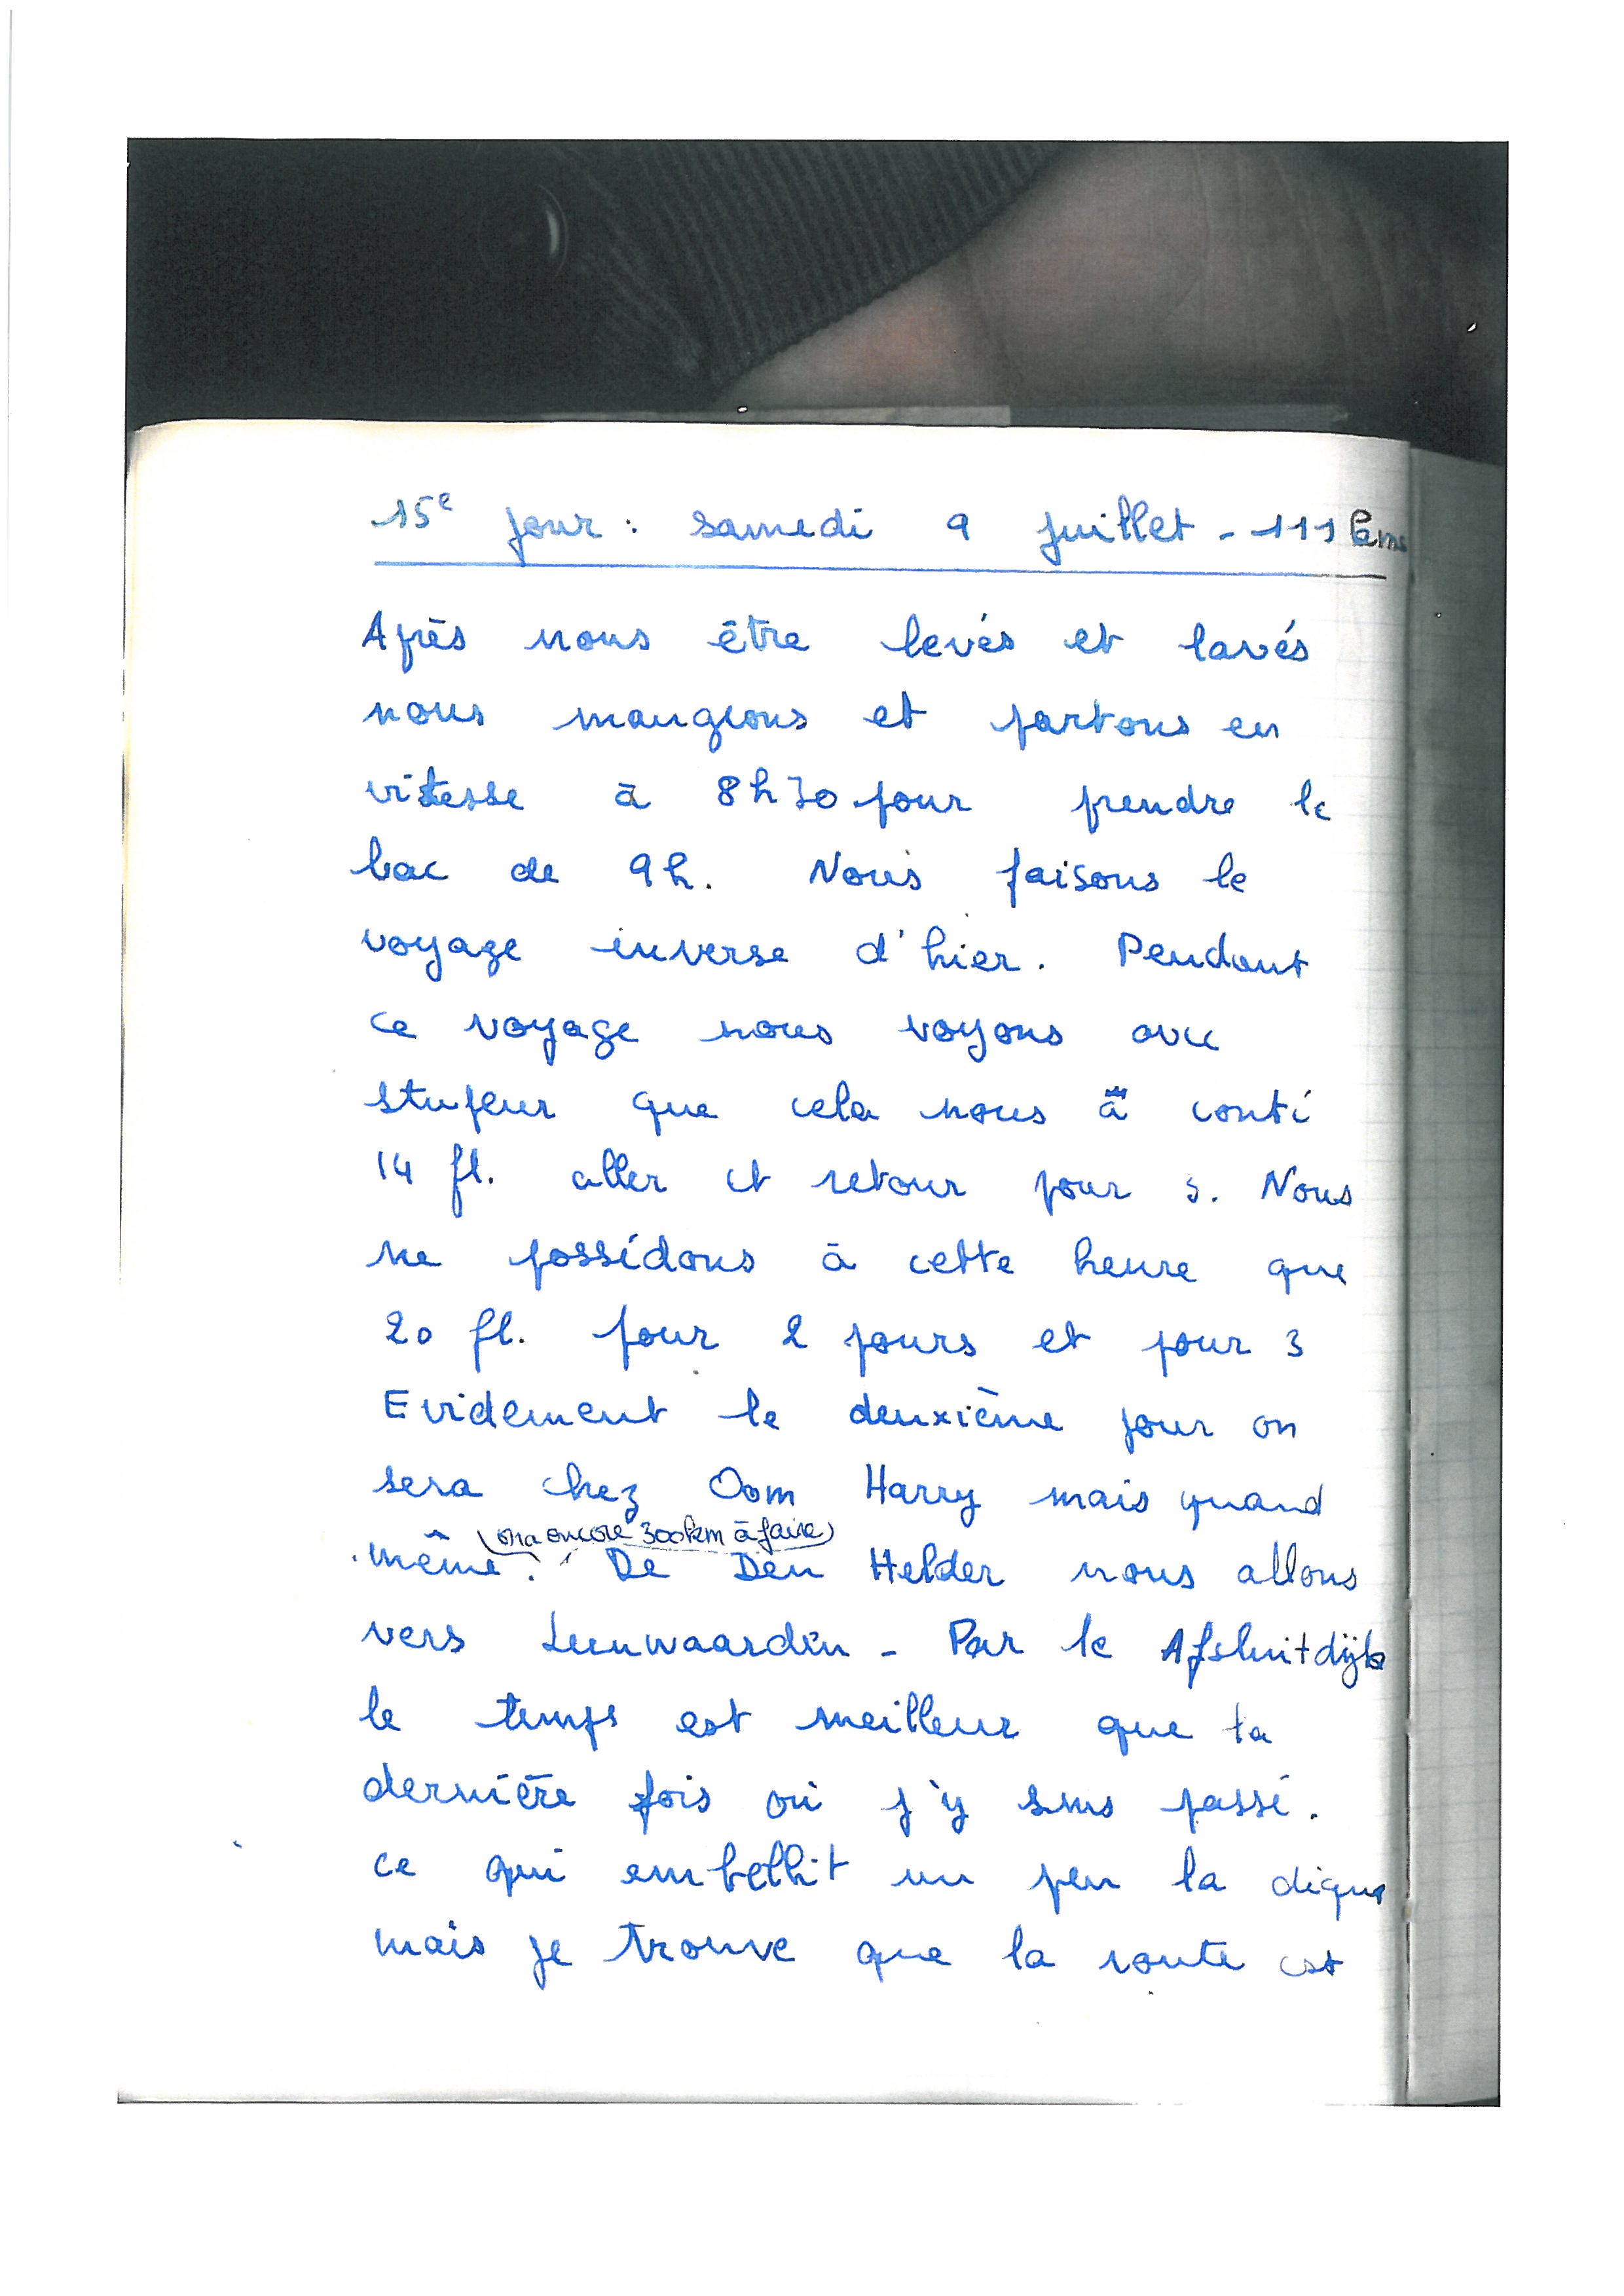 15e jour : samedi 9 juillet - 111 kms
Après nous être levés et lavés
nous mangeons et partons en
vitesse à 8h30 pour prendre le
bac de 9h. Nous faisons le
voyage inverse d'hier. Pendant
ce voyage nous voyons avec
stupeur que cela nous à conté
14 fl. aller et retour pour 3. Nous
ne possédons à cette heure que
20 fl. pour 2 jours et pour 3
Evidement le deuxième jour on
sera chez Oom Harry mais quand
(on a encore 300km à faire)
même. De Den Helder nous allons
vers Leenwaarden - Par le Afsluitdijk
le temps est meilleur que la
dernière fois où j'y suis passé.
ce qui embellit un peu la digue
mais je trouve que la route est